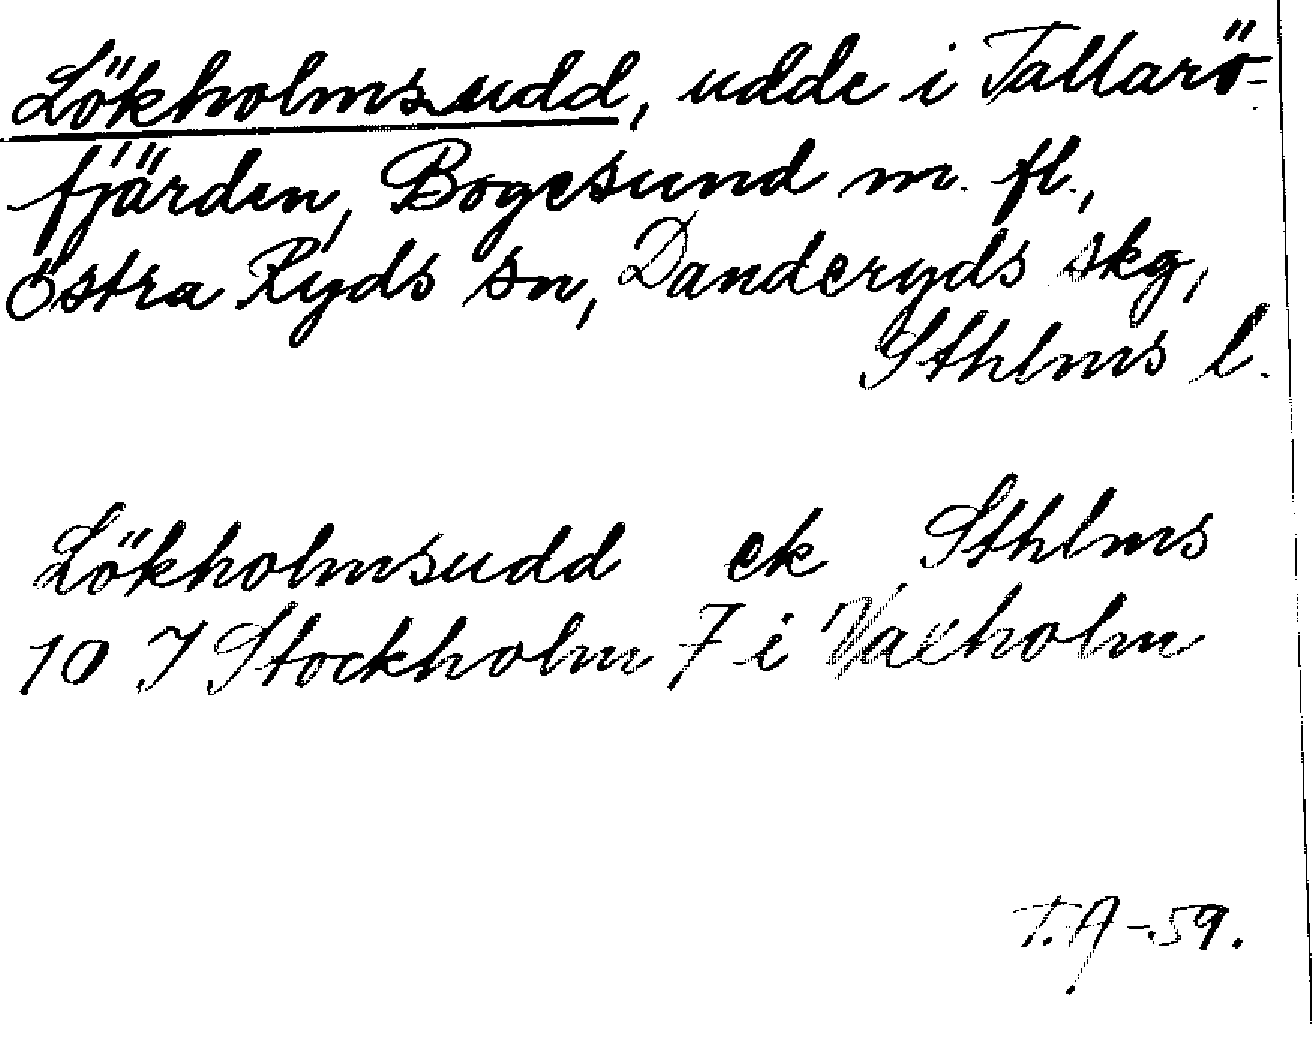 Lökholmsudd, udde i Tallarö-
fjärden, Bogesund m. fl.,
Östra Ryds sn, Danderyds skg,
Sthlms l.
Lökholmsudd ek Sthlms
10 I Stockholm 7 i Vaxholm
T.A-59.